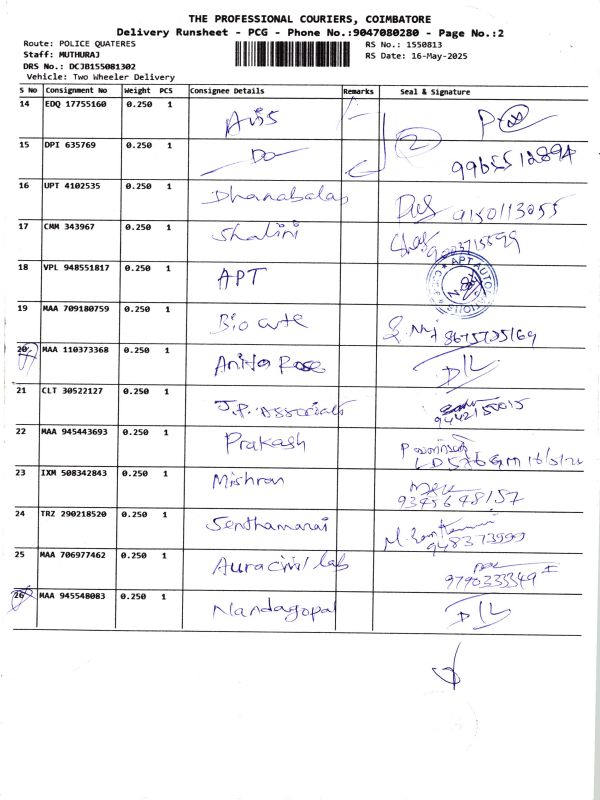 THE PROFESSIONAL COURIERS, COIMBATORE
Delivery Runsheet - PCG - Phone No.:9047080280 - Page No.:2
Route: POLICE QUATERES
RS No.: 1550813
Staff: MUTHURAJ
RS Date: 16-May-2025
DRS No.: DCJB155081302
Vehicle: Two Wheeler Delivery
S No Consignment No Weight PCS Consignee Details Remarks Seal & Signature
14 EDQ 17755160 0.250 1
15 DPI 635769 0.250 1 Do 2 9965512894
16 UPT 4102535 0.250 1 Dhanabalan 9150113055
17 CMM 343967 0.250 1 Shalini
18 VPL 948551817 0.250 1 APT
19 MAA 709180759 0.250 1
20 MAA 110373368 0.250 1 Anita Rose D/L
21 CLT 30522127 0.250 1 J.P. Associates 9442155015
22 MAA 945443693 0.250 1 Prakash
23 IXM 508342843 0.250 1 Mishran 9345648157
24 TRZ 290218520 0.250 1 Senthamarai
25 MAA 706977462 0.250 1 Auracivil lab 9790333349
26 MAA 945548083 0.250 1 Nandagopal D/L